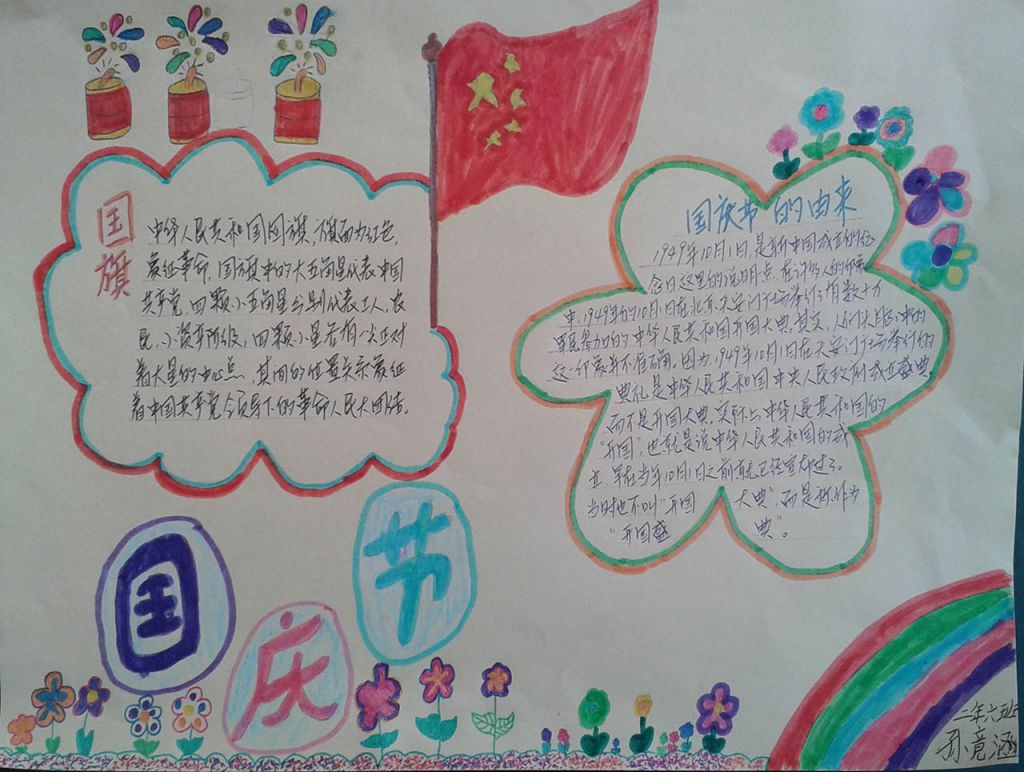 国旗
中华人民共和国国旗，旗面为红色，
象征革命，国旗中的大五角星代表中国
共产党，四颗小五角星分别代表工人，农
民，小资产阶级，四颗小星各有一尖正对
着大星的中心点，其间的位置关系象征
着中国共产党领导下的革命人民大团结。
国庆节的由来
1949年10月1日，是新中国成立的纪
念日。这里的说明点，在许多人的印象
中，1949年的10月1日在北京天安门广场举行了有数十万
军民参加的中华人民共和国开国大典，其实，人们头脑中的
这一印象并不准确。因为，1949年10月1日在天安门广场举行的
典礼是中华人民共和国中央人民政府成立盛典，
而不是开国大典，实际上，中华人民共和国的
"开国"，也就是说中华人民共和国的成
立，早在当年10月1日之前就已经宣布过了。
当时也不叫"开国大典"，而是称作为
"开国盛典"。
国庆节
二年六班